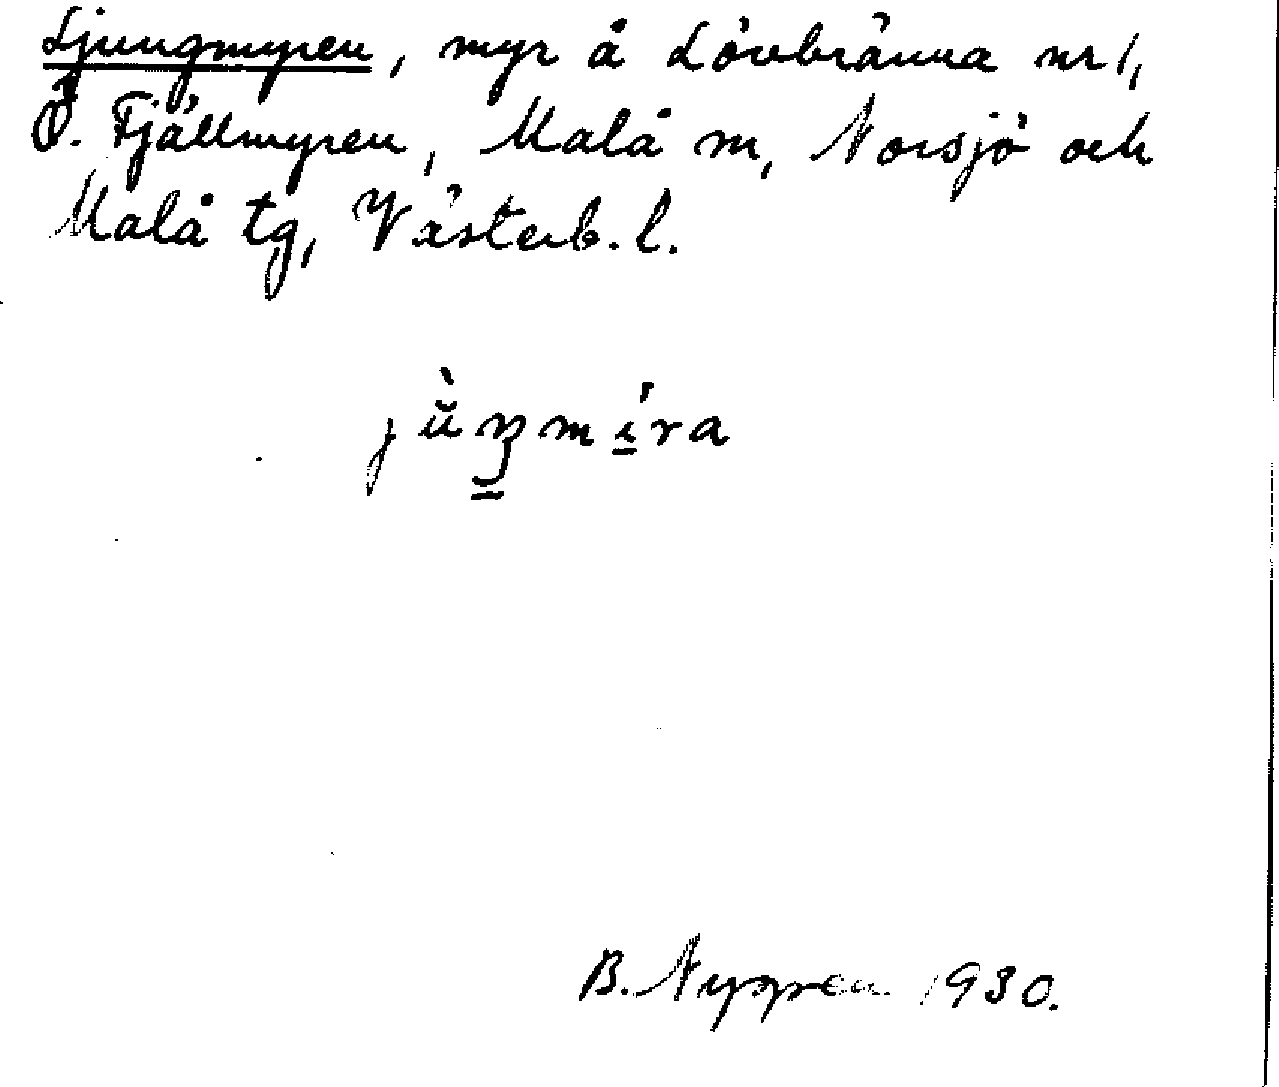 Ljungmyren, myr å Lövbränna nr 1,
Ö. Fjällmyren, Malå m, Norsjö och
Malå tg, Västerb. l.
B. Nygren 1930.